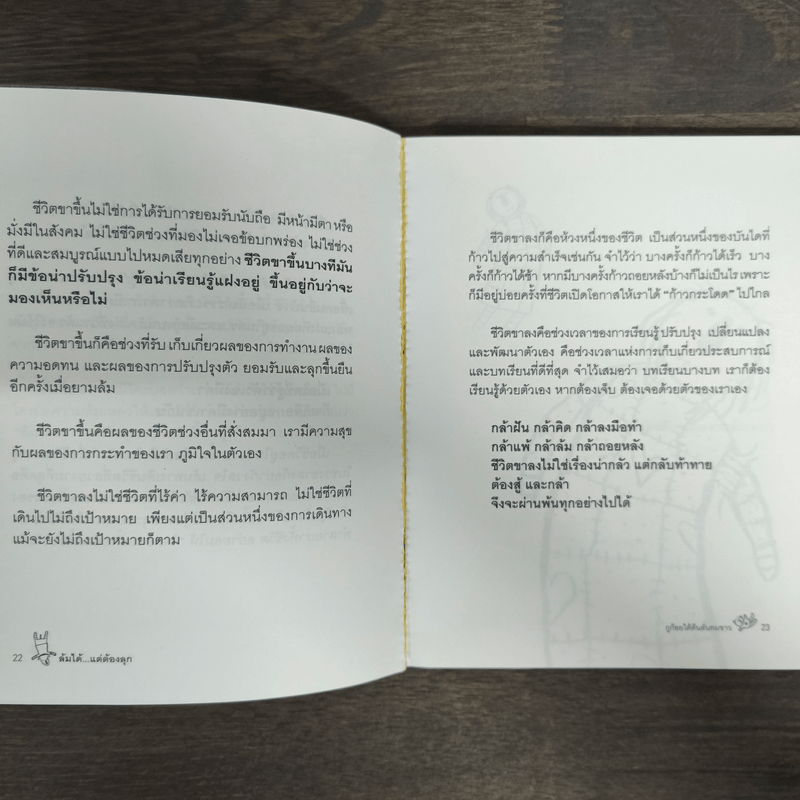 ชีวิตขาขึ้นไม่ใช่การได้รับการยอมรับนับถือ มีหน้ามีตา หรือ
มั่งมีในสังคม ไม่ใช่ชีวิตช่วงที่มองไม่เจอข้อบกพร่อง ไม่ใช่ช่วง
ที่ดีและสมบูรณ์แบบไปหมดเสียทุกอย่าง ชีวิตขาขึ้นบางทีมัน
ก็มีข้อน่าปรับปรุง ข้อน่าเรียนรู้แฝงอยู่ ขึ้นอยู่กับว่าจะ
มองเห็นหรือไม่
ชีวิตขาขึ้นก็คือช่วงที่รับ เก็บเกี่ยวผลของการทำงาน ผลของ
ความอดทน และผลของการปรับปรุงตัว ยอมรับและลุกขึ้นยืน
อีกครั้งเมื่อยามล้ม
ชีวิตขาขึ้นคือผลของชีวิตช่วงอื่นที่สั่งสมมา เรามีความสุข
กับผลของการกระทำของเรา ภูมิใจในตัวเอง
ชีวิตขาลงไม่ใช่ชีวิตที่ไร้ค่า ไร้ความสามารถ ไม่ใช่ชีวิตที่
เดินไปไม่ถึงเป้าหมาย เพียงแต่เป็นส่วนหนึ่งของการเดินทาง
แม้จะยังไม่ถึงเป้าหมายก็ตาม
22 ล้มได้...แต่ต้องลุก
ชีวิตขาลงก็คือห้วงหนึ่งของชีวิต เป็นส่วนหนึ่งของบันไดที่
ก้าวไปสู่ความสำเร็จเช่นกัน จำไว้ว่า บางครั้งก็ก้าวได้เร็ว บาง
ครั้งก็ก้าวได้ช้า หากมีบางครั้งก้าวถอยหลังบ้างก็ไม่เป็นไร เพราะ
ก็มีอยู่บ่อยครั้งที่ชีวิตเปิดโอกาสให้เราได้ "ก้าวกระโดด" ไปไกล
ชีวิตขาลงคือช่วงเวลาของการเรียนรู้ ปรับปรุง เปลี่ยนแปลง
และพัฒนาตัวเอง คือช่วงเวลาแห่งการเก็บเกี่ยวประสบการณ์
และบทเรียนที่ดีที่สุด จำไว้เสมอว่า บทเรียนบางบท เราก็ต้อง
เรียนรู้ด้วยตัวเอง หากต้องเจ็บ ต้องเจอด้วยตัวของเราเอง
กล้าฝัน กล้าคิด กล้าลงมือทำ
กล้าแพ้ กล้าล้ม กล้าถอยหลัง
ชีวิตขาลงไม่ใช่เรื่องน่ากลัว แต่กลับท้าทาย
ต้องสู้ และกล้า
จึงจะผ่านพ้นทุกอย่างไปได้
23